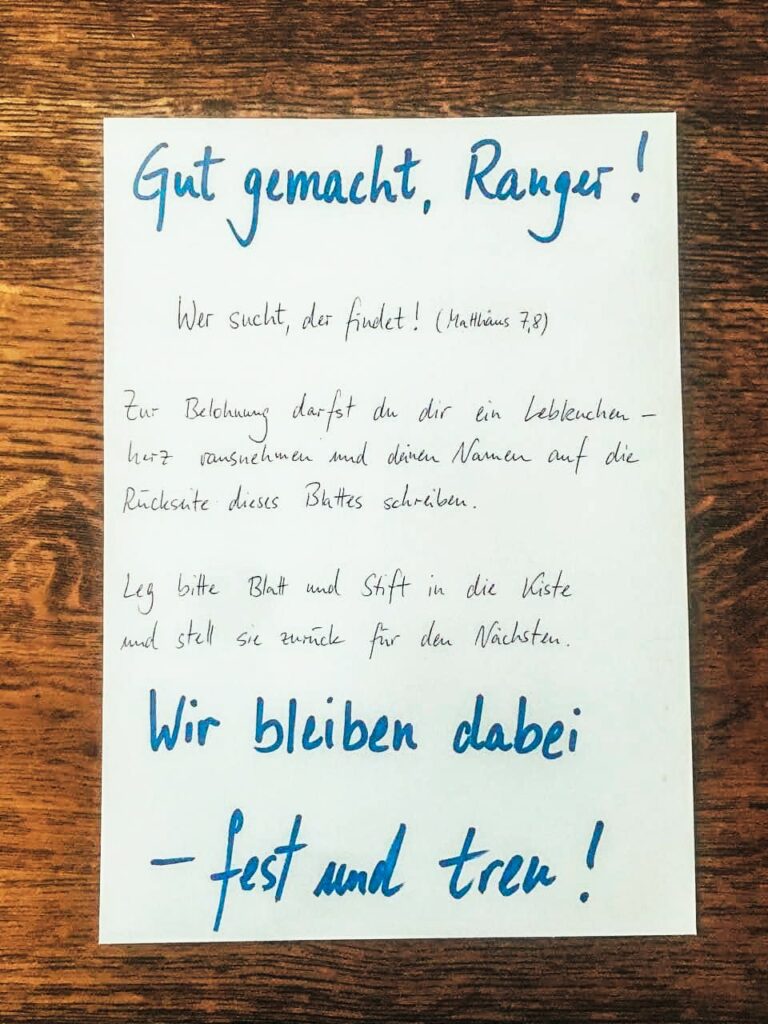 Gut gemacht, Ranger!
Wer sucht, der findet! (Matthäus 7,8)
Zur Belohnung darfst du dir ein Lebkuchen-
herz rausnehmen und deinen Namen auf die
Rückseite dieses Blattes schreiben.
Leg bitte Blatt und Stift in die Kiste
und stell sie zurück für den Nächsten.
Wir bleiben dabei
- fest und treu!